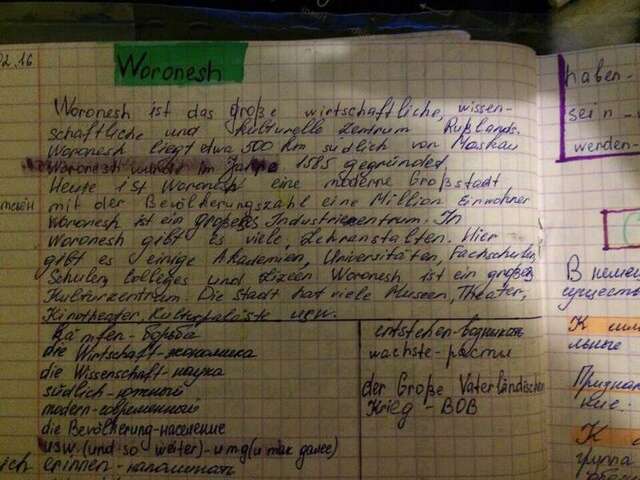 02.16
Woronesh
Woronesh ist das große wirtschaftliche, wissen-
schaftliche und kulturelle Zentrum Rußlands.
Woronesh liegt etwa 500 km südlich von Moskau
Woronesh wurde im Jahre 1585 gegründed
Heute ist Woronesh eine moderne Großstadt
mit der Bevölkerungszahl eine Million Einwohner
Woronesh ist ein großes Industriezentrum. In
Woronesh gibt es viele Lehranstalten. Hier
gibt es einige Akademien, Universitäten, Fachschulen,
Schulen, Colleges und Lizeen. Woronesh ist ein großes
Kulturzentrum. Die stadt hat viele Museen, Theater,
Kinotheater, Kulturpaläste usw.
Kämfen-борьба
die Wirtschaft-экономика
die Wissenschaft-наука
südlich-южный
modern-современный
die Bevölkerung-население
usw (und so weiter)-итд(и так далее)
erinnen-напоминать
entstehen-возникать
wachste-расти
der Große Vaterländischen
Krieg - ВОВ
haben-
sein-
werden-
В немец
существ
К сил
льные
Признак
ние-
К с
группа
ich